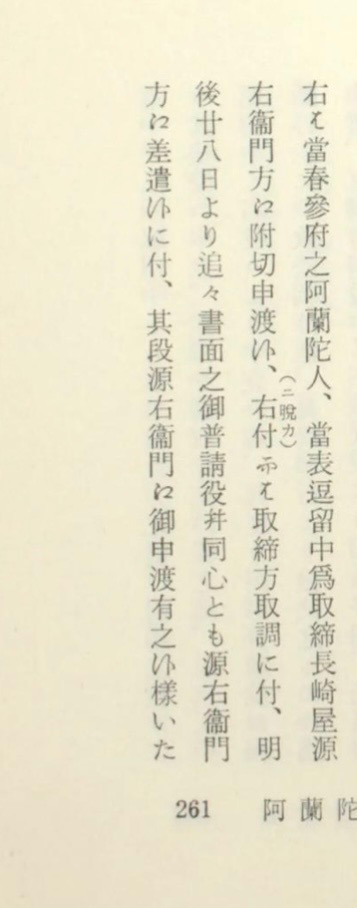 右ハ當春參府之阿蘭陀人、當表逗留中爲取締長崎屋源
右衞門方ニ附切申渡候、右付(ニ脱カ)而ハ取締方取調に付、明
後廿八日より追々書面之御普請役幷同心とも源右衞門
方ニ差遣候に付、其段源右衞門ニ御申渡有之候樣いた
261 阿蘭陀